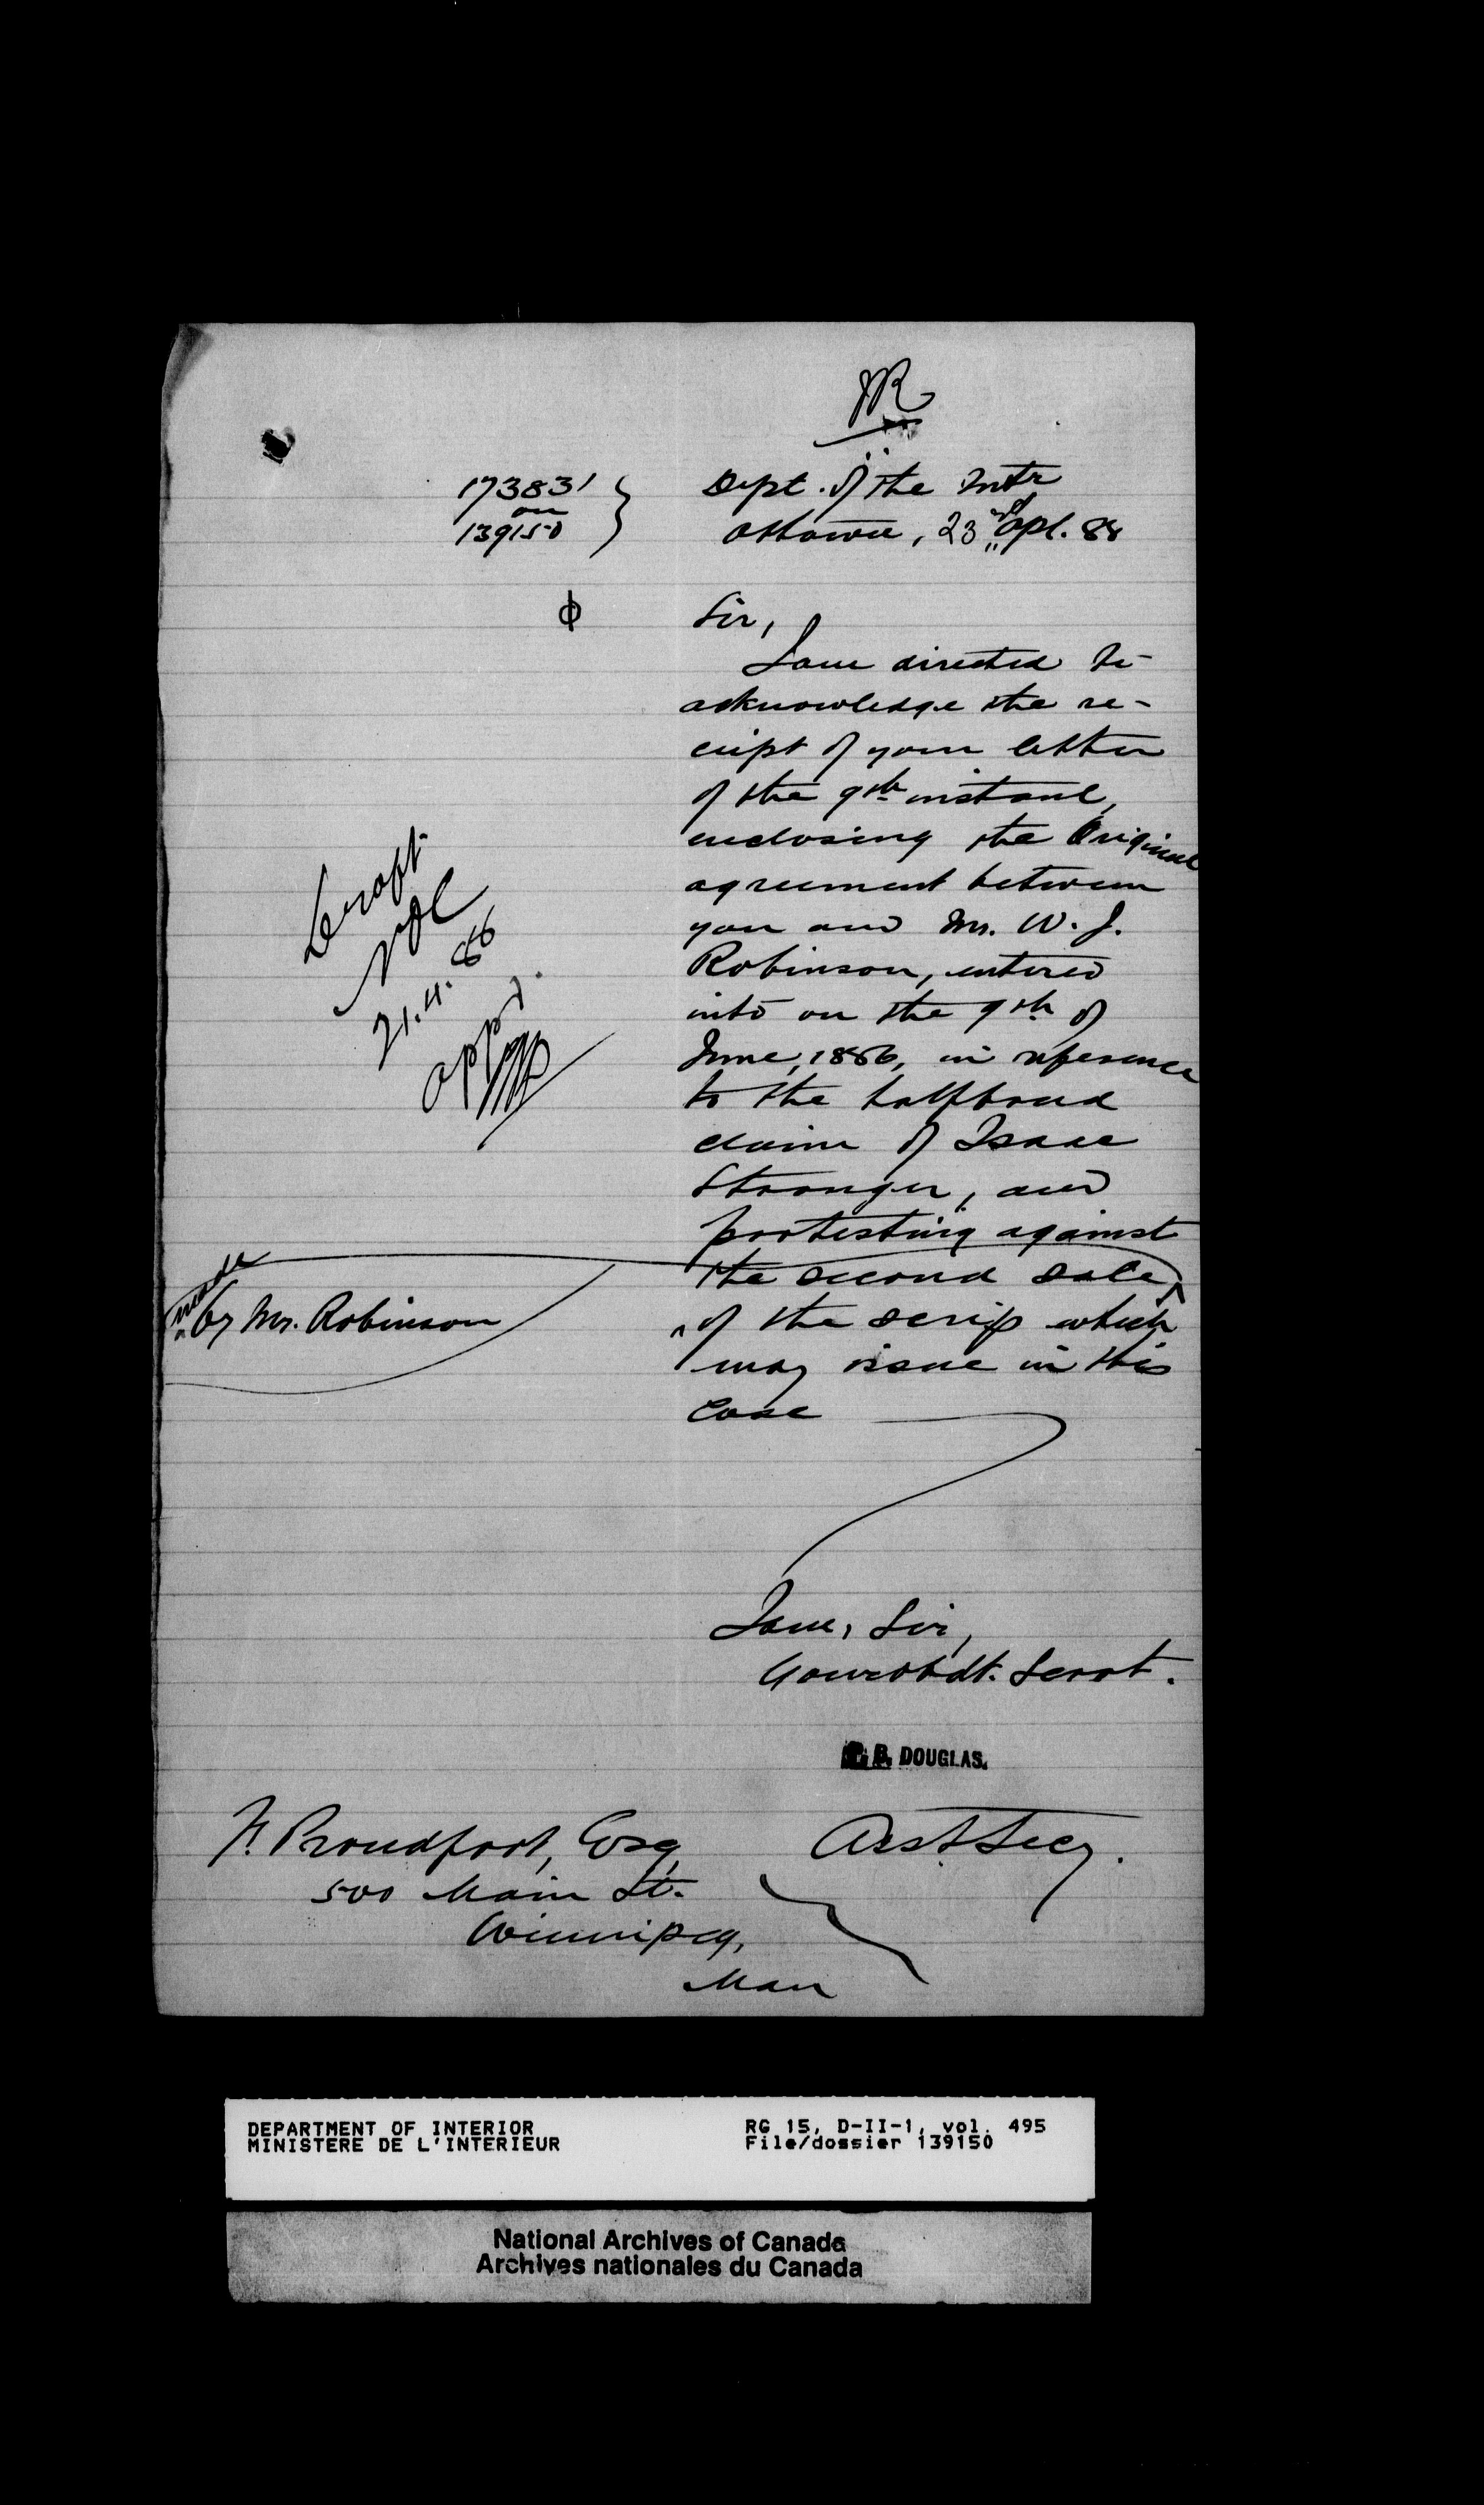 173831
on
139150
Dept. of the Intr
Ottawa, 23rd Apl. 88
Sir,
I am directed to
acknowledge the re-
ceipt of your letter
of the 9th instant,
enclosing the Original
agreement between
you and Mr. W. J.
Robinson, entered
into on the 9th of
June, 1886, in reference
to the halfbreed
claim of Isaac
Stranger, and
protesting against
the second sale
made
by Mr. Robinson
of the scrip which
may issue in this
Case
Draft
21.4.88
appd.
I am, Sir,
Your obdt. Servt.
P. B. DOUGLAS.
Asst Secy.
F. Proudfoot, Esq,
500 Main St.
Winnipeg,
Man
DEPARTMENT OF INTERIOR
MINISTERE DE L'INTERIEUR
RG 15, D-II-1, vol. 495
File/dossier 139150
National Archives of Canada
Archives nationales du Canada